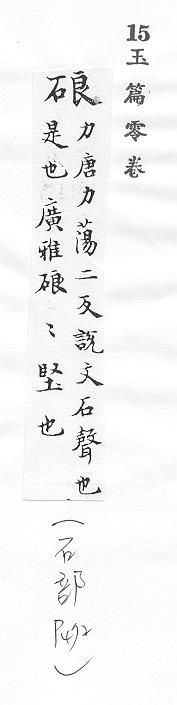 15玉篇零卷
硠
力唐力蕩二反說文石聲也
是也廣雅硠〻堅也
(石部P492)